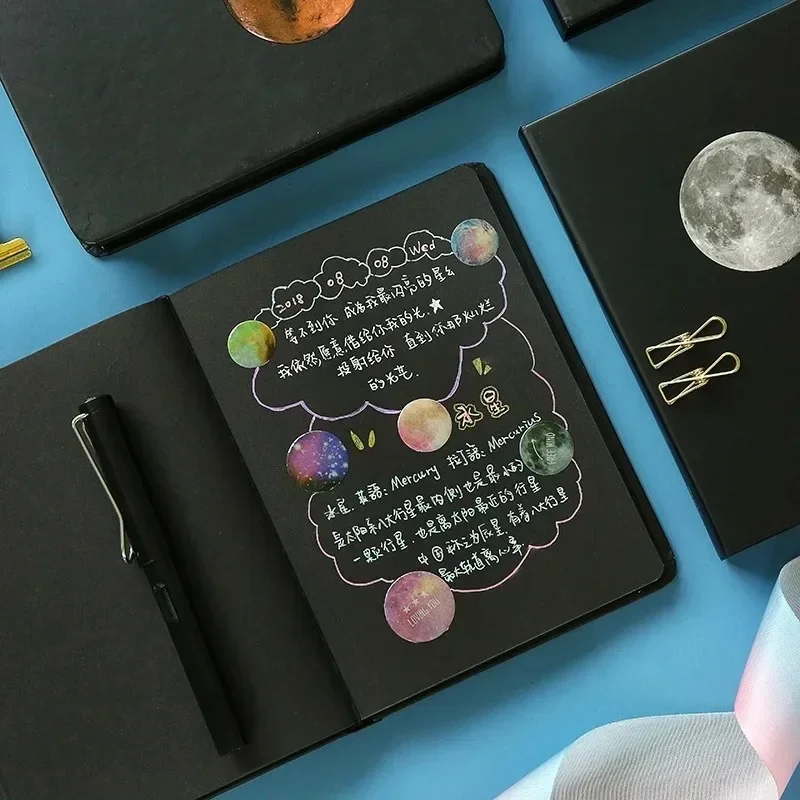 2018 08 08 Wed
等不到你 成为我最闪亮的星幺
我依然愿意借给你我的光.★
投射给你 直到你那灿烂
的光芒.
水星
水星.英語: Mercury 拉丁語: Mercurius
FREE MIND
是太阳系八大行星最内侧也是最小的
一颗行星.也是离太阳最近的行星
中国称之为辰星.有着八大行星
最大轨道离心率
LOVING YOU